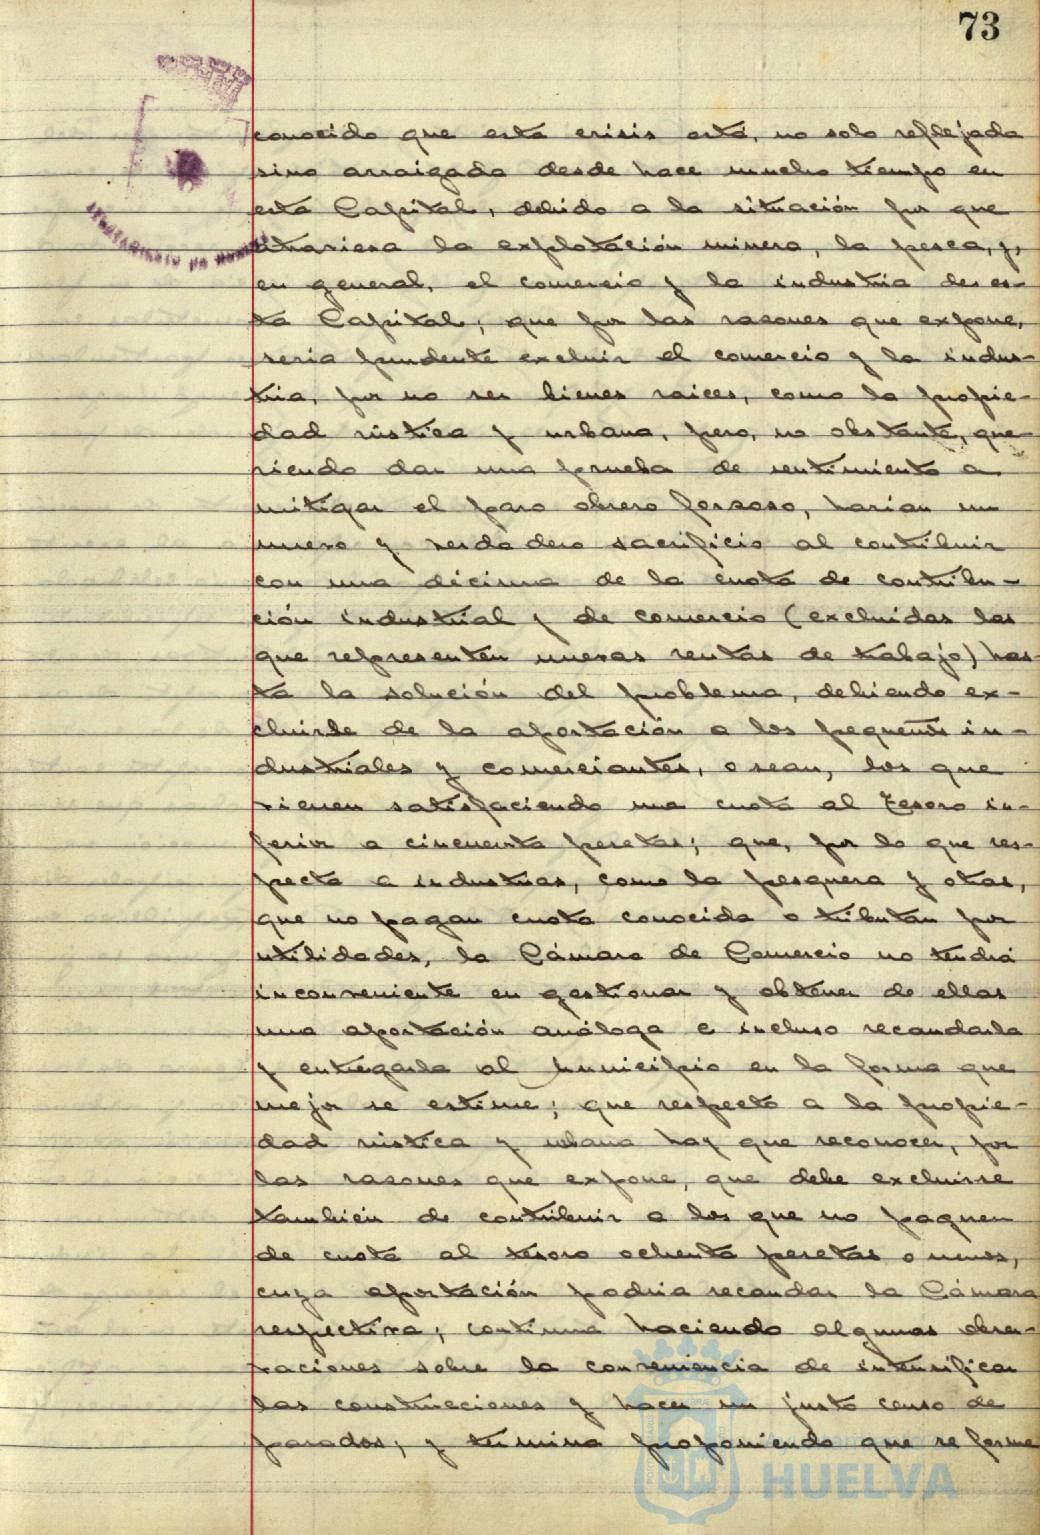 73
conocido que esta crisis está, no solo reflejada
sino arraigada desde hace mucho tiempo en
esta Capital, debido a la situación por que
atraviesa la explotación minera, la pesca, y,
en general, el comercio y la industria de es-
ta Capital; que por las razones que expone,
seria prudente excluir el comercio y la indus-
tria, por no ser bienes raices, como la propie-
dad rústica y urbana, pero, no obstante, que
riendo dar una prueba de sentimiento a
mitigar el paro obrero forzoso, harian un
nuevo y verdadero sacrificio al contribuir
con una décima de la cuota de contribu-
ción industrial y de comercio (excluidas las
que representen nuevas rentas de trabajo) has-
ta la solución del problema, debiendo ex-
cluirse de la aportación a los pequeños in-
dustriales y comerciantes, o sean, los que
vienen satisfaciendo una cuota al Tesoro in-
ferior a cincuenta pesetas; que, por lo que res-
pecta a industrias, como la pesquera y otras,
que no pagan cuota conocida o tributan por
utilidades, la Cámara de Comercio no tendrá
inconveniente en gestionar y obtener de ellas
una aportación análoga e incluso recaudarla
y entregarla al Municipio en la forma que
mejor se estime; que respecto a la propie-
dad rústica y urbana hay que reconocer, por
las razones que expone, que debe excluirse
también de contribuir a los que no paguen
de cuota al tesoro ochenta pesetas o menos,
cuya aportación podria recaudar la Cámara
respectiva; continua haciendo algunas obser-
vaciones sobre la conveniencia de intensificar
las construcciones y hacer un justo censo de
parados; y termina proponiendo que se forme
HUELVA